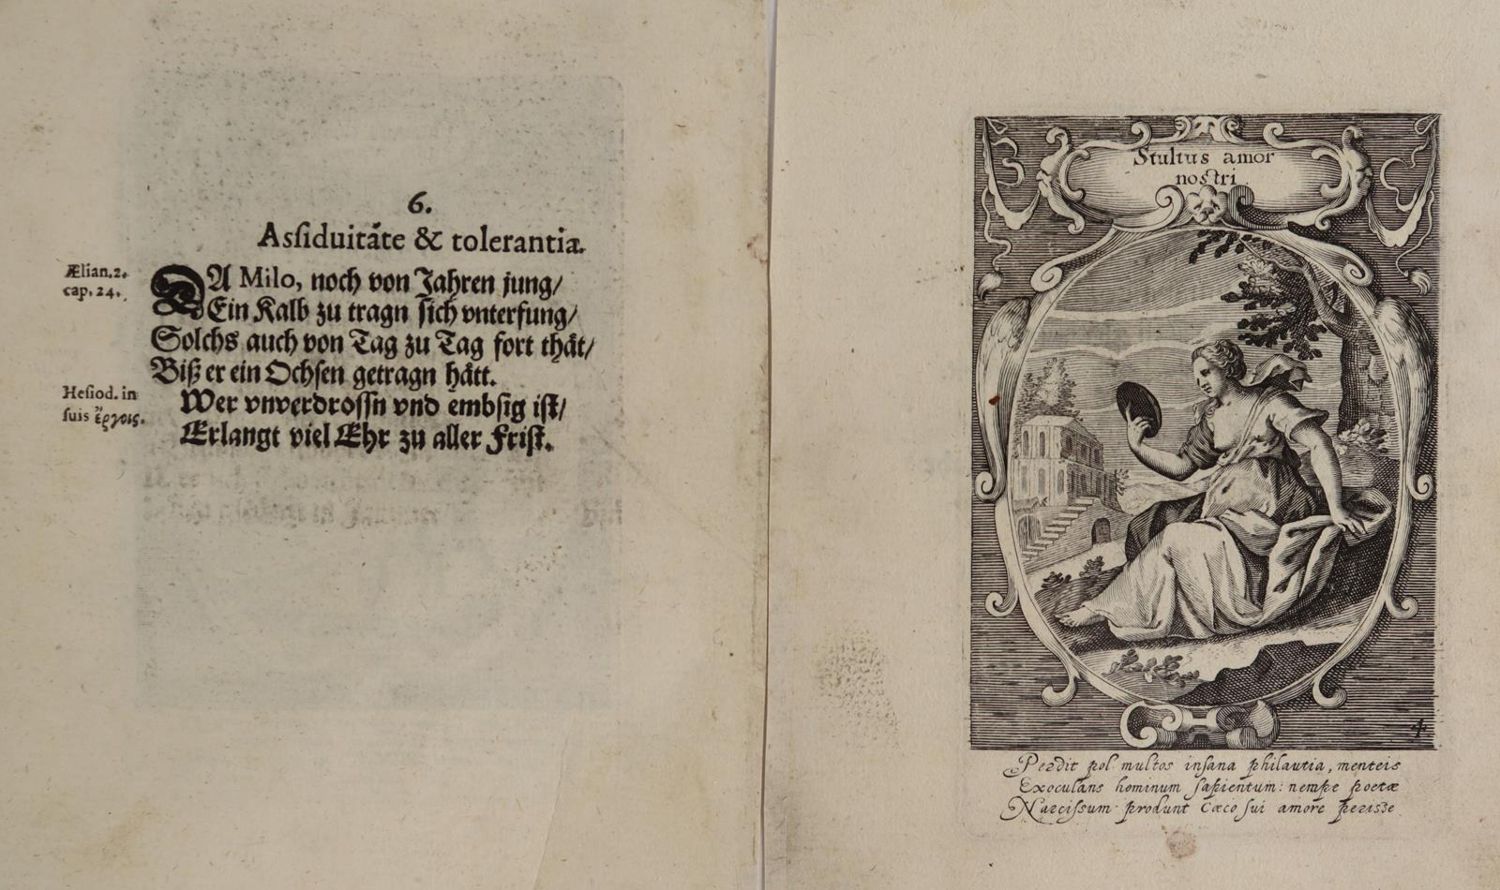 6.
Assiduitate & tolerantia.
Ælian. 2.
cap. 24.
DA Milo, noch von Jahren jung/
Ein Kalb zu tragn sich vnterfung/
Solchs auch von Tag zu Tag fort thät/
Biß er ein Ochsen getragn hätt.
Hesiod. in
suis ἔργοις.
Wer vnverdrossn vnd embsig ist/
Erlangt viel Ehr zu aller Frist.
Stultus amor
nostri
4
Perdit pol multos insana philautia, menteis
Exoculans hominum sapientum: nempe poetæ
Narcissum produnt cæco sui amore perisse